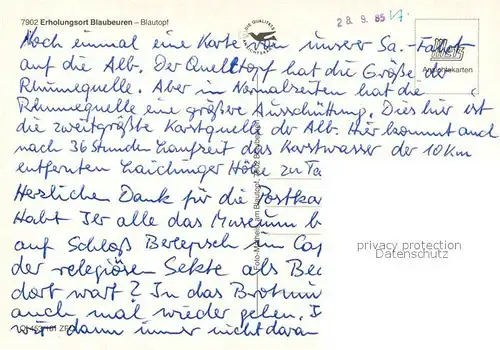 7902 Erholungsort Blaubeuren – Blautopf
28. 9. 85
DIE QUALITÄTS
Noch einmal eine Karte von unserer Sa.-Fahrt
auf die Alb. Der Quelltopf hat die Größe der
Ansichtskarten
Rhumequelle. Aber in Normalzeiten hat die
Rhumequelle eine größere Ausschüttung. Dies hier ist
die zweitgrößte Karstquelle der Alb. Hier kommt auch
nach 36 Stunden Laufzeit das Karstwasser der 10 Km
entfernten Laichinger Höhle zu Ta
Herzlichen Dank für die Postkar
Habt Ier alle das Museum b
auf Schloß Berlepsch im Cap
der religiösen Sekte als Bed
dort wart? In das Brotmu
auch mal wieder gehen. I
wir dann immer nicht daran
privacy protection
Datenschutz
am Blautopf, 7902 Blaubeuren